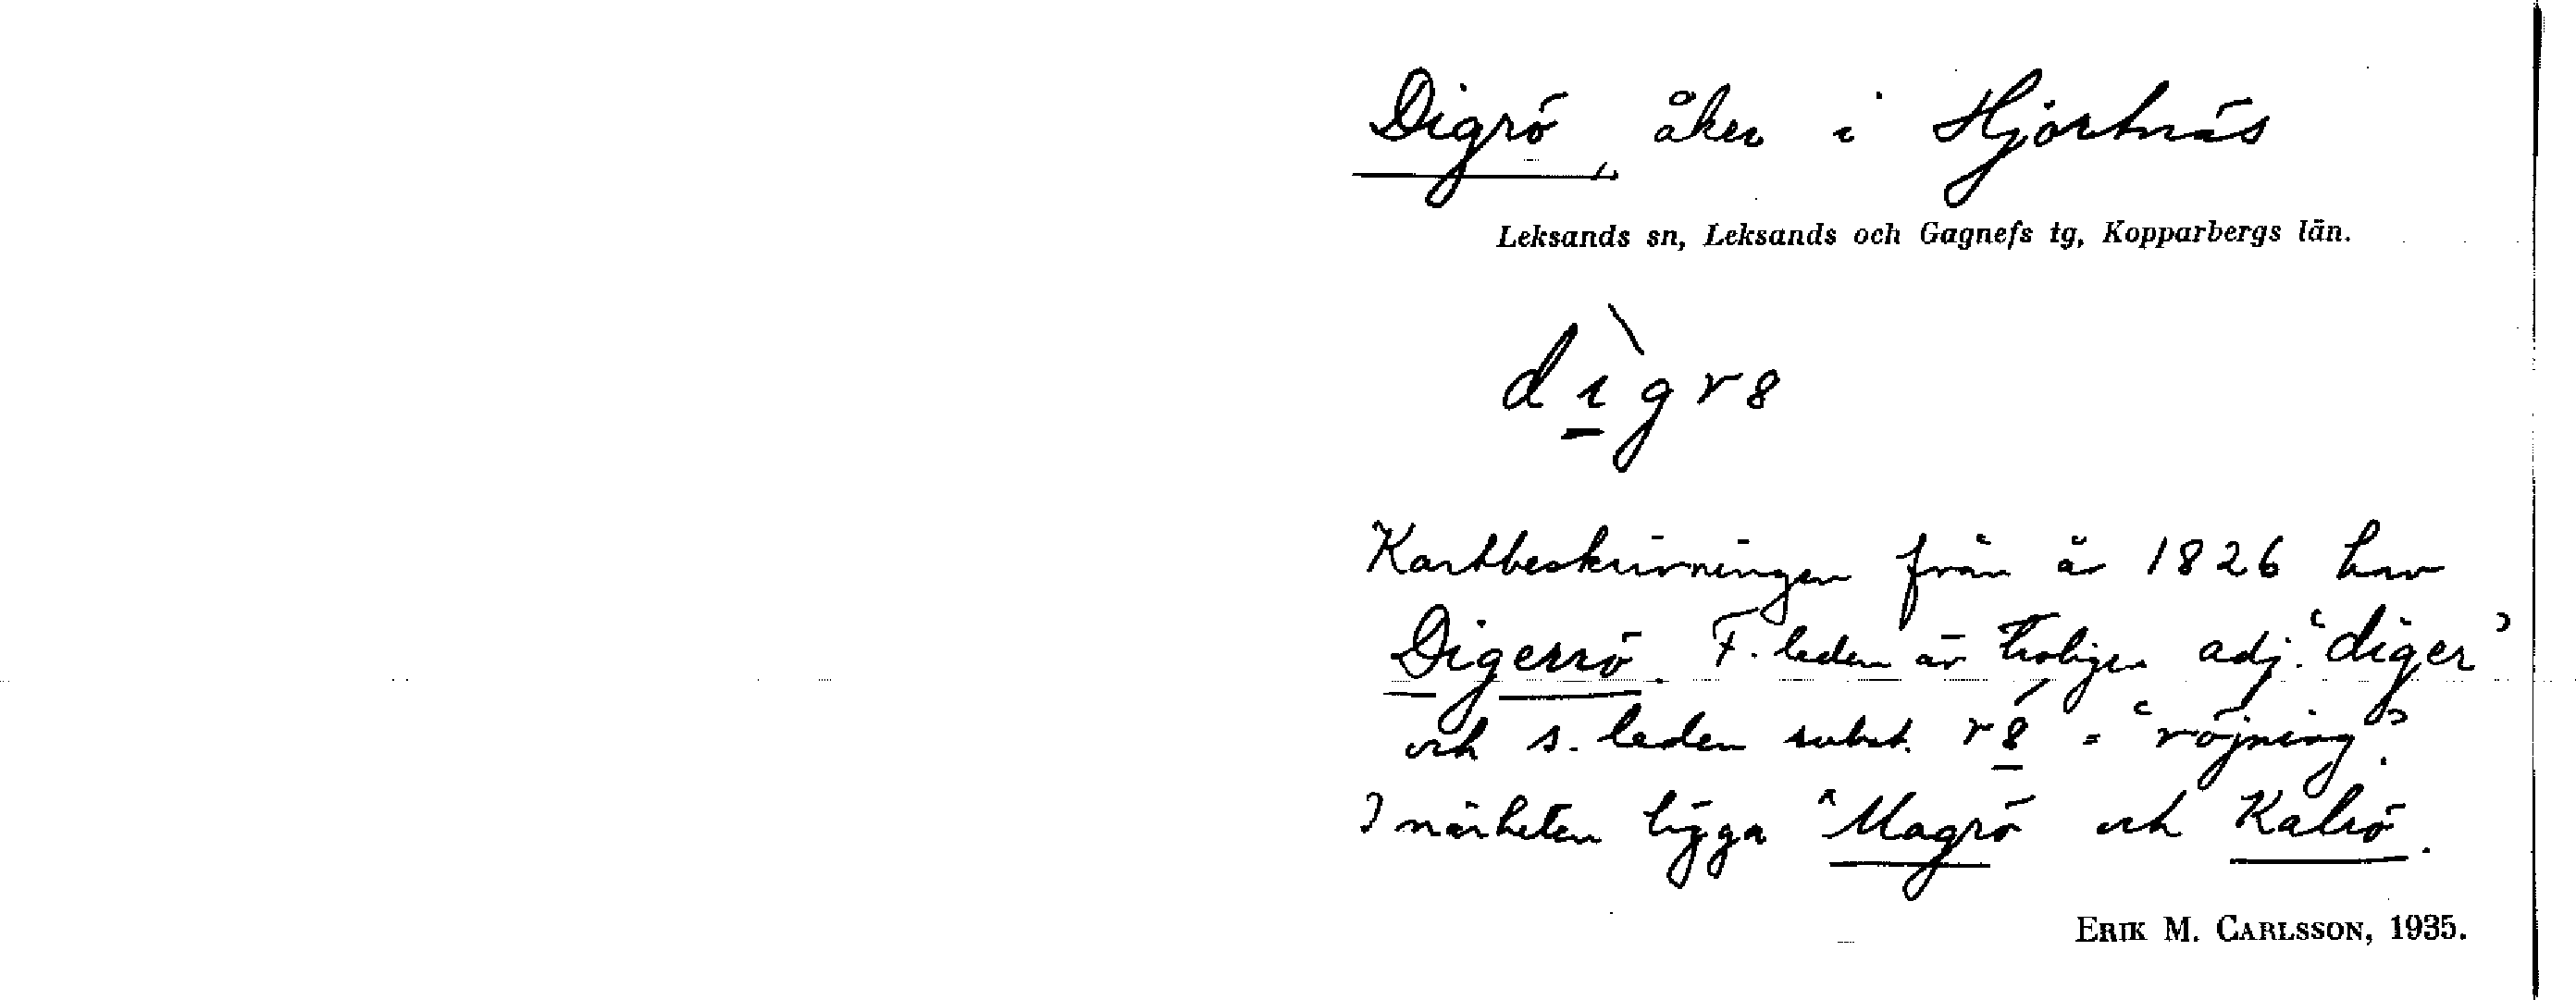 Digrö, åker i Hjortnäs
Leksands sn, Leksands och Gagnefs tg, Kopparbergs län.
dìgr8
Kartbeskrivningen från år 1826 har
Digerrö. F. leden är troligen adj. "diger"
och s. leden subst. r8́ = "röjning".
I närheten ligga Magrö och Kalrö.
ERIK M. CARLSSON, 1935.